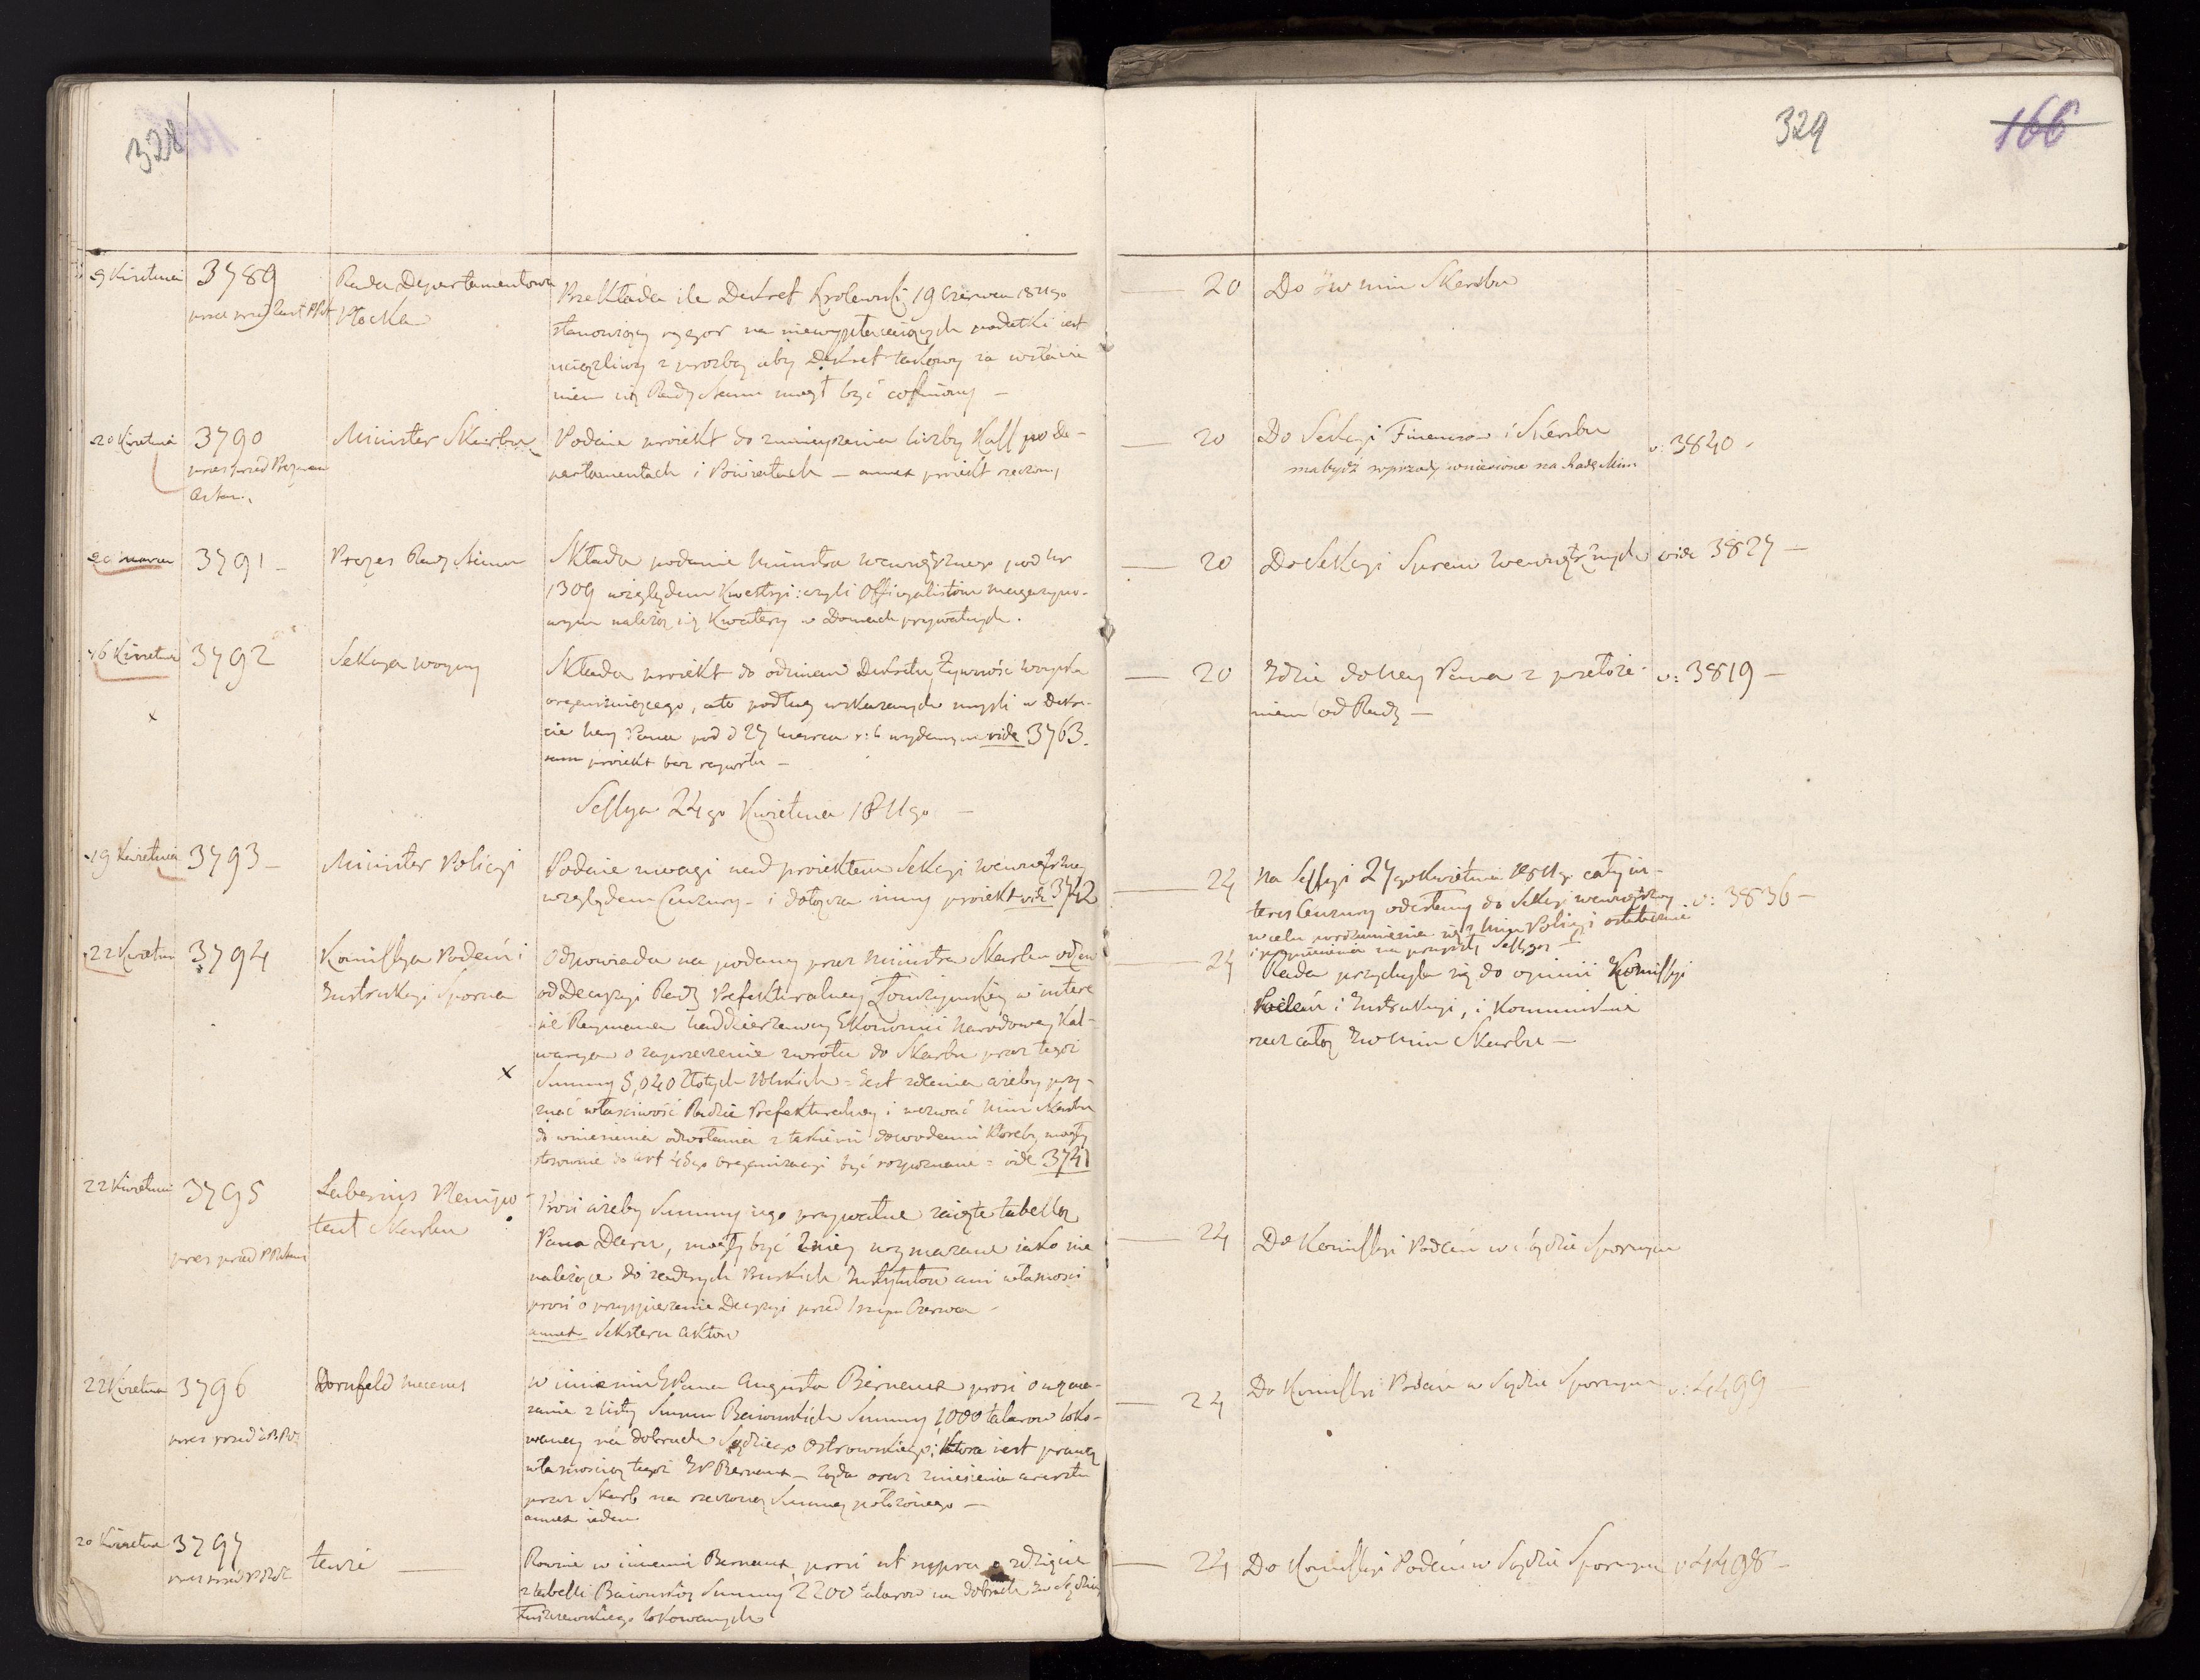 328
329
166
9 Kwietnia 3789 Rada Departamentowa
Płocka
Przekłada ile Dekret Krolewski 19 Czerwca 1811go
stanowiący rygor na niewypłacaiących podatki iest
uciążliwy z prozbą aby Dekret takowy za wstawie
niem się Rady Stanu mogł być cofniony —
— 20 Do JW Min Skarbu
20 Kwietnia 3790 Minister Skarbu
Podaie proiekt do zmnieyszenia liczby Kass po De-
partamentach i Powiatach — annex proiekt rzeczony
— 20 Do Sekcyi Finansow i Skarbu v: 3840
ma bydź wprzody wniesione na Radę Min
20 marca 3791 — Prezes Rady Stanu
Składa podanie Ministra Wewnętrznego pod Nr
1309 względem Kwestyi: czyli Officyalistom magazyno-
wym należą się Kwatery w Domach prywatnych.
— 20 Do Sekcyi Spraw Wewnętrznych vide 3827 —
16 Kwietnia 3792 Sekcya woyny
x
Składa proiekt do odmian Dekretu Żywność woyska
organizuiącego, a to podług wskazanych myśli w Dekre-
cie Nay Pana pod d 27 marca r: b wydanym vide 3763.
sam proiekt bez raportu —
— 20 Idzie do Nay Pana z przełoże- v: 3819 —
niem od Rady —
Sessya 24go Kwietnia 1811go —
19 Kwietnia 3793 — Minister Policyi
Podaie uwagi nad proiektem Sekcyi Wewnętrzney
względem Cenzury — i dołącza inny proiekt vide 3742
— 24 Na Sessyi 27go Kwietnia 1811go cały in-
teres Cenzury odesłany do Sekcyi wewnętrzney v: 3836 —
w celu porozumienia się z Min Policyi i ostatecznie
na przyszłą Sessyą —
22 Kwietnia 3794 Komissya Podań i
Instrukcyi Sporna
Odpowiada na podany przez Ministra Skarbu
od Decyzyi Rady Prefekturalney Łomżyńskiey w intere
sie Reymana Naddzierżawcy Ekonomii Narodowey Kal-
warya o zaprzeczenie zwrotu do Skarbu przez tegoż
x Summy 5,040 Złotych Polskich = iest zdania ażeby przy-
znać właściwość Radzie Prefekturalney i wezwać Min Skarbu
do wniesienia odwołania z takiemi dowodami ktoreby mogły
stosownie do Art 45go organizacyi być rozpoznane = vide 3741
— 24 Rada przychyla się do opinii Komissyi
Podań i Instrukcyi, i Kommunikuie
rzecz całą JW Min Skarbu —
22 Kwietnia 3795 Laberius Plenipo-
tent Skarbu
Prosi ażeby Summy iego prywatne zaięte tabellą
Pana Daru, mogły być z niey wymazane iako nie
należące do żadnych Pruskich Instytutow ani własnosci
prosi o przyspieszenie Decyzyi przed 1szym Czerwca —
annex Seksztern aktow
— 24 Do Komissyi Podań w Sądzie Spornym
22 Kwietnia 3796 Dornfeld Mecenas
w imieniu JPana Augusta Bernaux prosi o wyma-
zanie z listy Summ Baiońskich Summy 1000 talarow loko-
waney na dobrach Sędziego Ostrowskiego; ktora iest prawą
własnoscią tegoż JP Bernaux — żąda oraz zniesienia aresztu
przez Skarb na rzeczoney Summy położonego —
annex ieden
— 24 Do Komissyi Podań w Sądzie Spornym v: 4499
20 Kwietnia 3797 tenże —
Rownie w imieniu Bernaux prosi ut supra o zdięcie
z tabelli Baiońskiey Summy 2200 talarow na dobrach JW Sędziego
lokowanych
— 24 Do Komissyi Podań w Sądzie Spornym v 4498 —